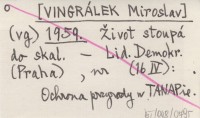 [VINGRÁLEK Miroslav]
(vg) 1959. Život stoupá
do skal. — Lid. Demokr.
(Praha), nr (16 IV):
Ochrona przyrody w TANAPie.